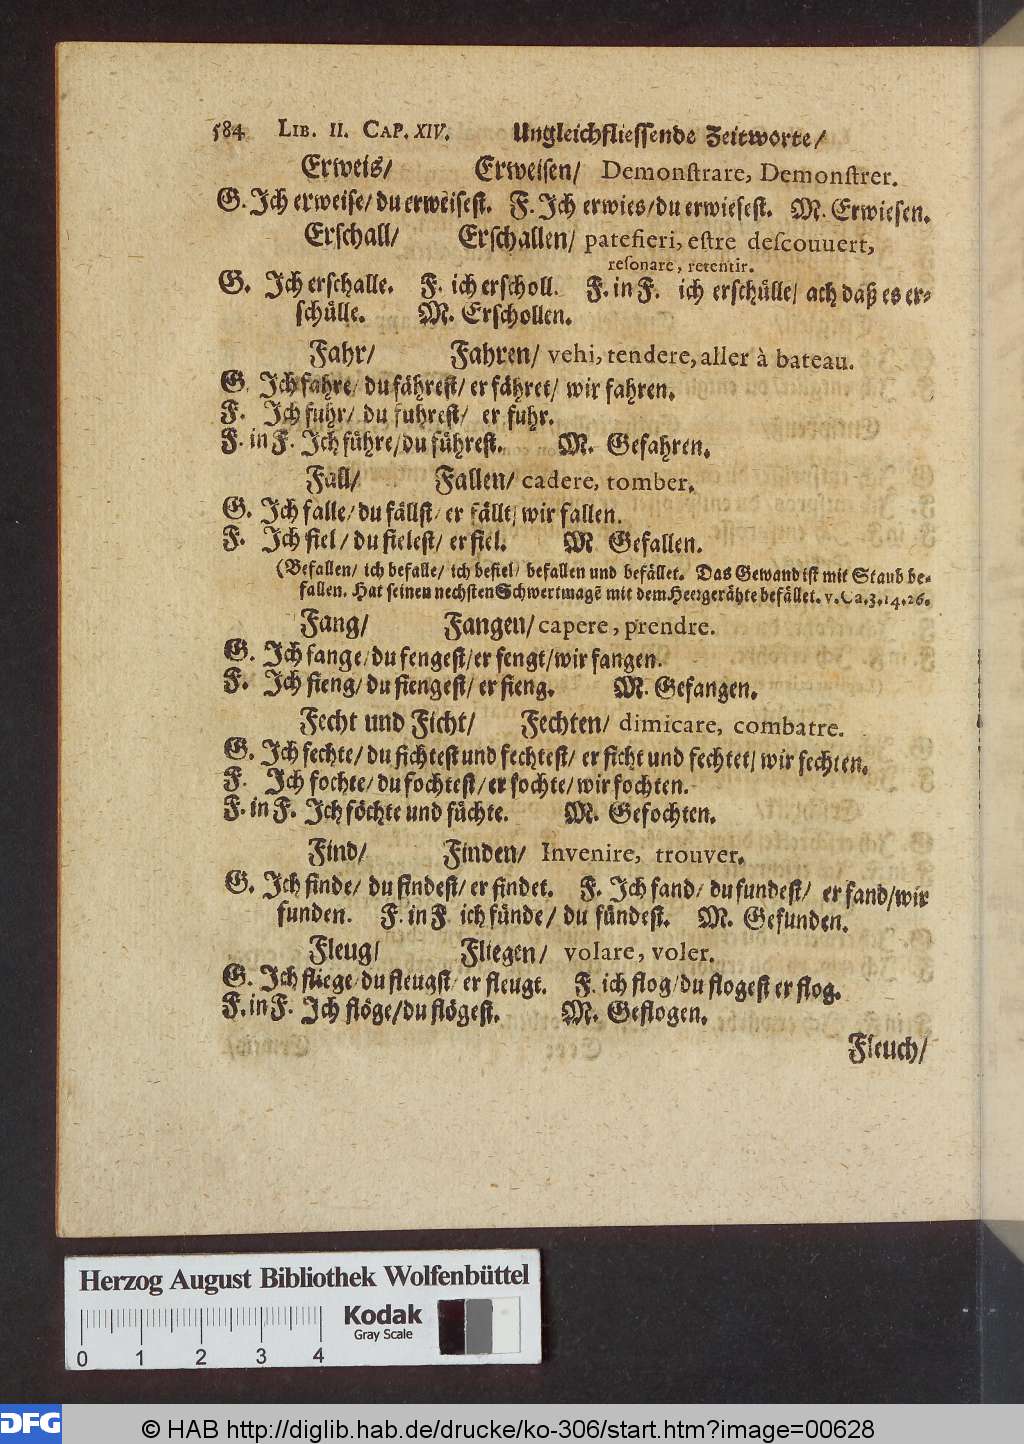 584 LIB. II. CAP. XIV. Ungleichflieſſende Zeitworte/
Erweis/ Erweiſen/ Demonſtrare, Demonſtrer.
G. Ich erweiſe/ du erweiſeſt. F. Ich erwies/ du erwieſeſt. M. Erwieſen.
Erſchall/ Erſchallen/ patefieri, eſtre deſcouuert,
reſonare, retentir.
G. Ich erſchalle. F. ich erſcholl. F. in F. ich erſchülle/ ach daß es er-
ſchülle. M. Erſchollen.
Fahr/ Fahren/ vehi, tendere, aller à bateau.
G. Ich fahre/ du fähreſt/ er fähret/ wir fahren.
F. Ich fuhr/ du fuhreſt/ er fuhr.
F. in F. Ich führe/ du führeſt. M. Gefahren.
Fall/ Fallen/ cadere, tomber.
G. Ich falle/ du fällſt/ er fällt/ wir fallen.
F. Ich fiel/ du fieleſt/ er fiel. M Gefallen.
(Befallen/ ich befalle/ ich befiel/ befallen und befället. Das Gewand iſt mit Staub be-
fallen. Hat ſeinen nechſten Schwertmagẽ mit dem Heergerähte befället. v. Ca. 3. 14. 26.
Fang/ Fangen/ capere, prendre.
G. Ich fange/ du fengeſt/ er fengt/ wir fangen.
F. Ich fieng/ du fiengeſt/ er fieng. M. Gefangen.
Fecht und Ficht/ Fechten/ dimicare, combatre.
G. Ich fechte/ du fichteſt und fechteſt/ er ficht und fechtet/ wir fechten.
F. Ich fochte/ du fochteſt/ er fochte/ wir fochten.
F. in F. Ich föchte und füchte. M. Gefochten.
Find/ Finden/ Invenire, trouver.
G. Ich finde/ du findeſt/ er findet. F. Ich fand/ du fundeſt/ er fand/ wir
funden. F. in F. ich fünde/ du fündeſt. M. Gefunden.
Fleug/ Fliegen/ volare, voler.
G. Ich fliege/ du fleugſt/ er fleugt. F. ich flog/ du flogeſt er flog.
F. in F. Ich flöge/ du flögeſt. M. Geflogen.
Fleuch/
Herzog August Bibliothek Wolfenbüttel
Kodak
Gray Scale
0 1 2 3 4
DFG
© HAB http://diglib.hab.de/drucke/ko-306/start.htm?image=00628